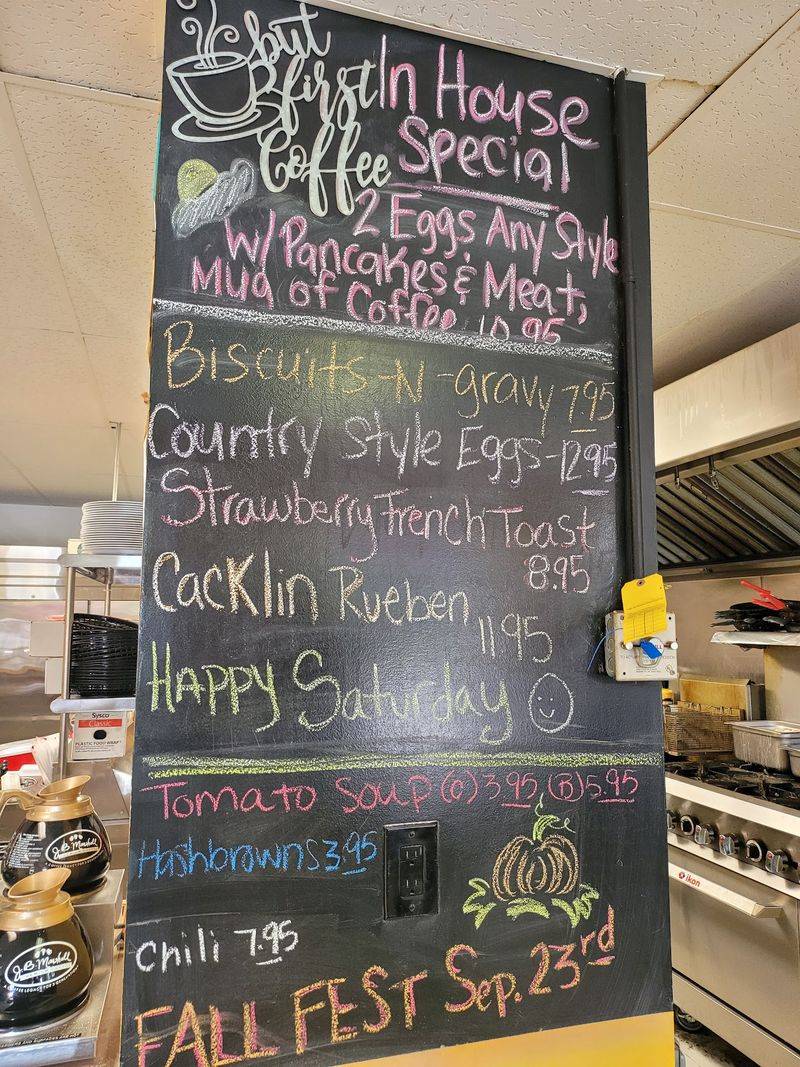 but
first
Coffee
In House
Special
2 Eggs Any Style
W/ Pancakes & Meat,
Mug of Coffee 10.95
Biscuits-N-gravy 7.95
Country Style Eggs-12.95
Strawberry French Toast
8.95
Cacklin Rueben
11.95
Happy Saturday
Tomato Soup (C) 3.95 (B) 5.95
Hashbrowns 3.95
Chili 7.95
FALL FEST Sep. 23rd
Sysco
Classic
PLASTIC FOOD WRAP
J.B. Marshall
J.B. Marshall
ikon